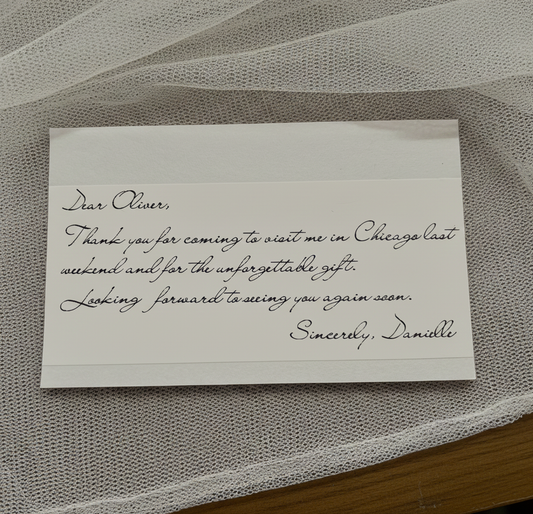 Dear Oliver,
Thank you for coming to visit me in Chicago last
weekend and for the unforgettable gift.
Looking forward to seeing you again soon.
Sincerely, Danielle